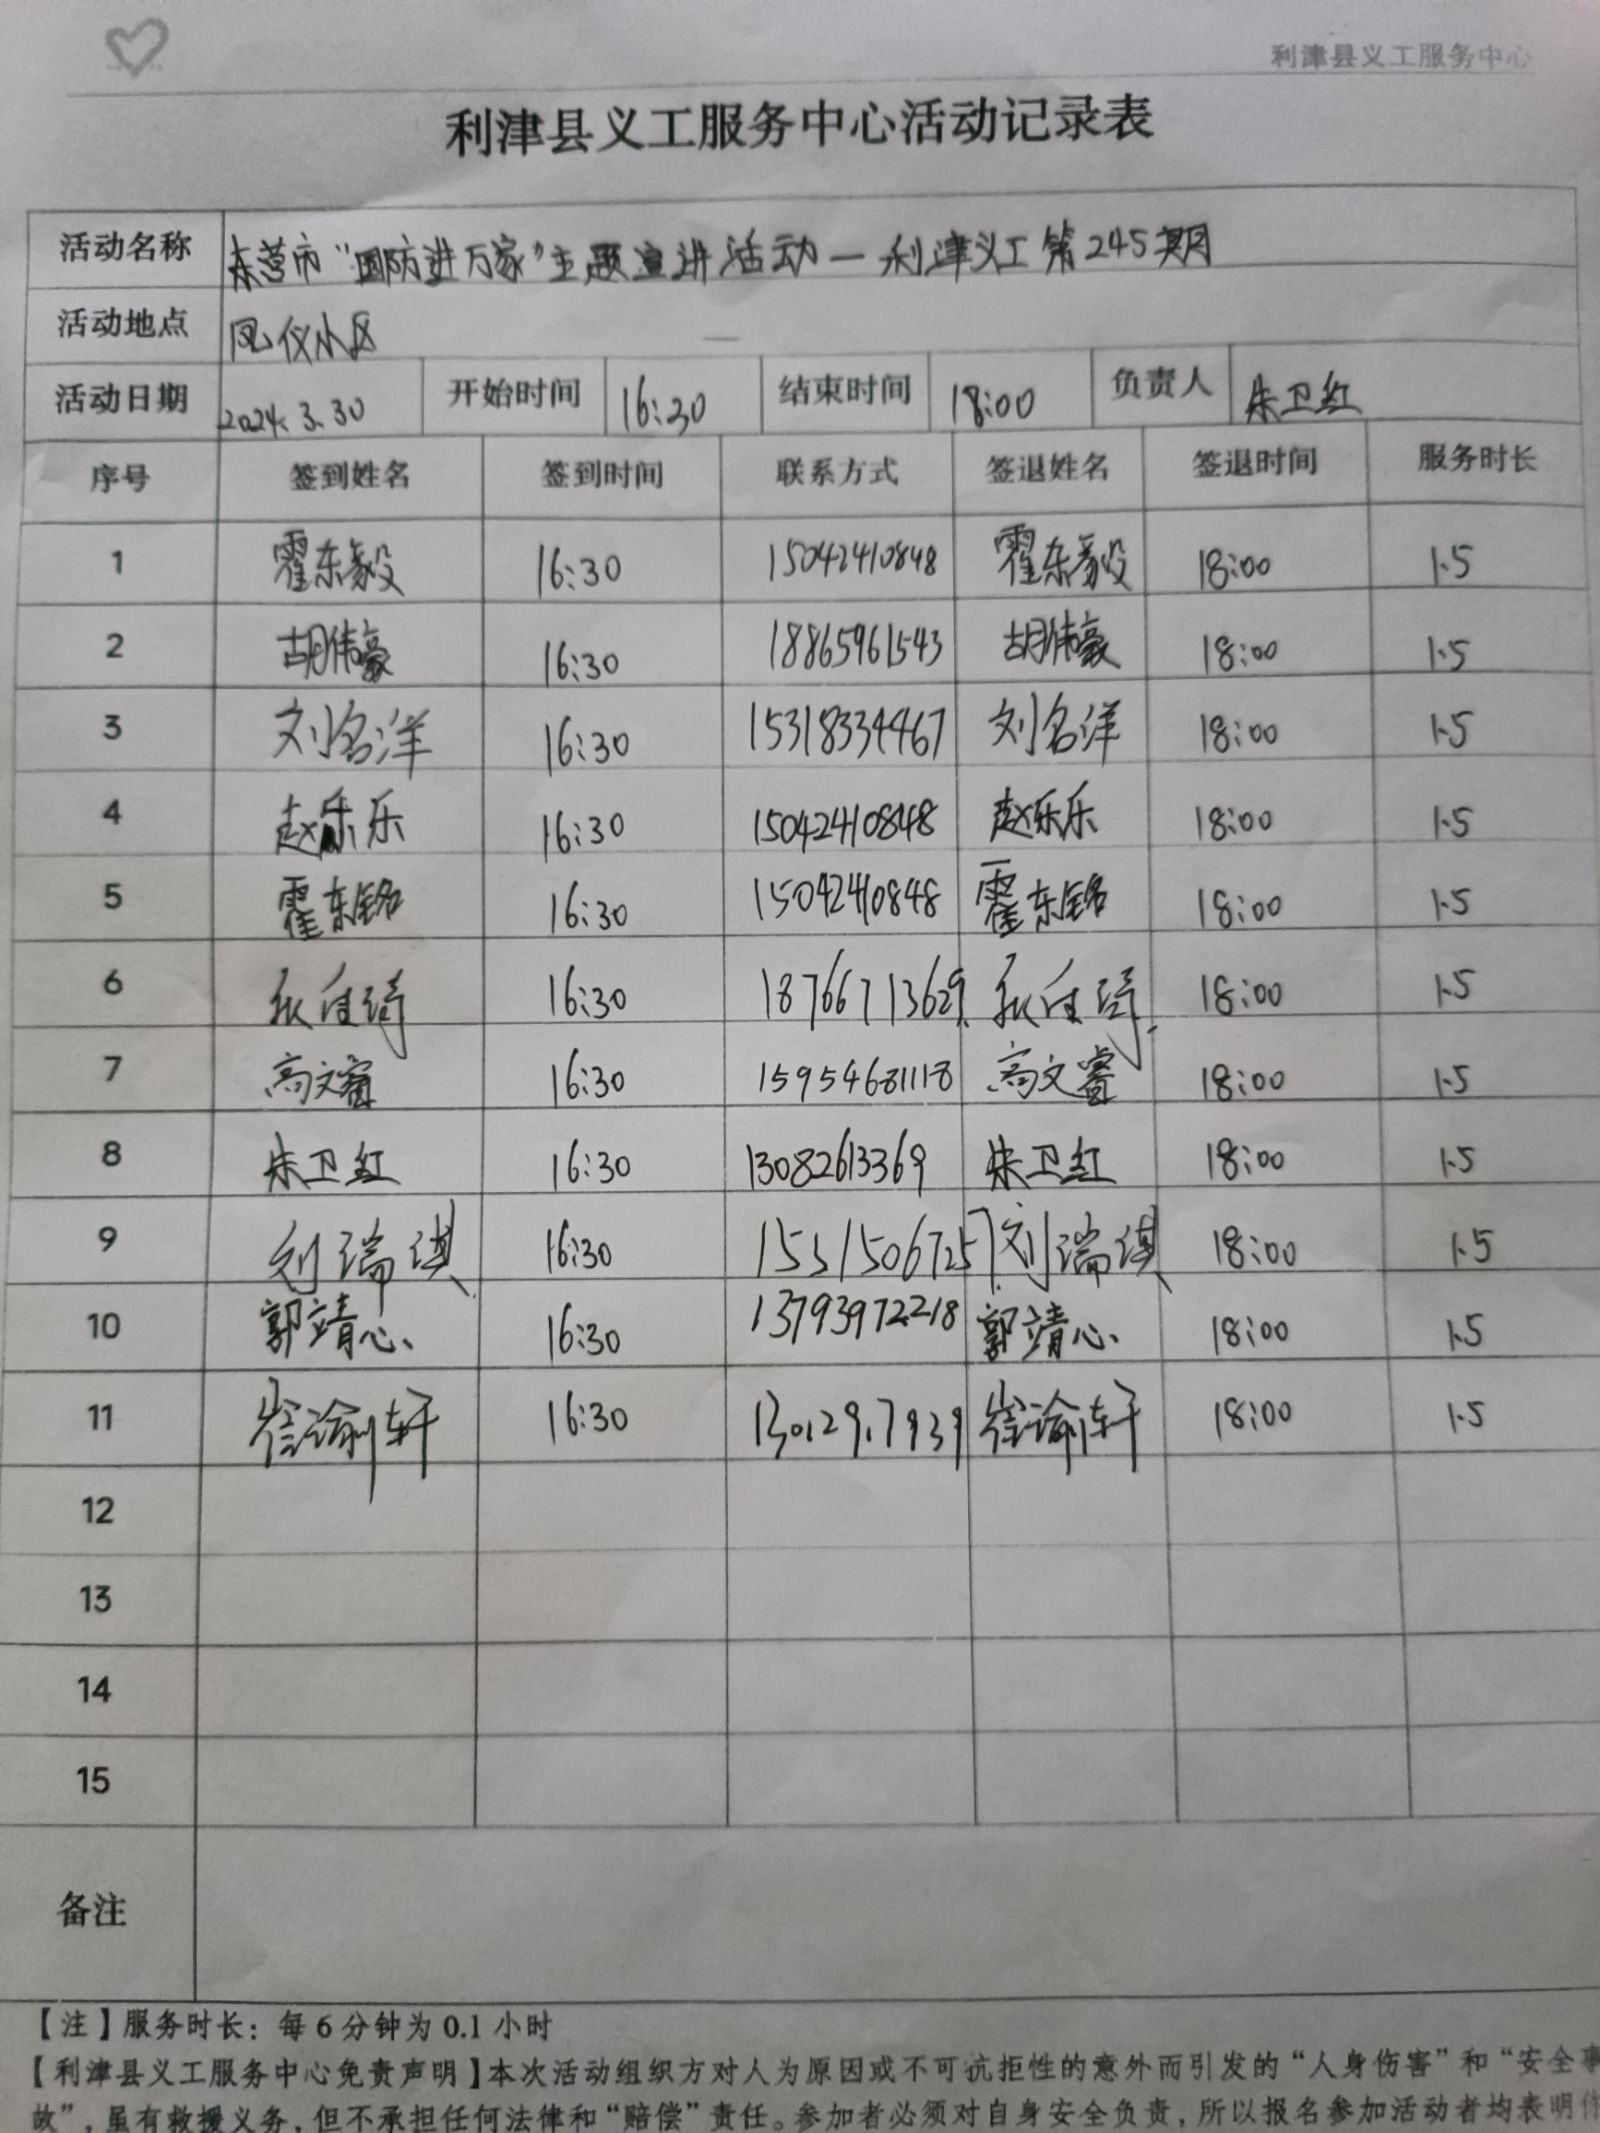 利津县义工服务中心
利津县义工服务中心活动记录表
活动名称 东营市“国防进万家”主题宣讲活动—利津义工第245期
活动地点 凤仪小区
活动日期 2024.3.30 开始时间 16:30 结束时间 18:00 负责人 朱卫红
序号 签到姓名 签到时间 联系方式 签退姓名 签退时间 服务时长
1 霍东毅 16:30 15042410848 霍东毅 18:00 1.5
2 胡伟豪 16:30 18865961543 胡伟豪 18:00 1.5
3 刘名洋 16:30 15318334467 刘名洋 18:00 1.5
4 赵乐乐 16:30 15042410848 赵乐乐 18:00 1.5
5 霍东铭 16:30 15042410848 霍东铭 18:00 1.5
6 张佳琦 16:30 18766713629 张佳琦 18:00 1.5
7 高文睿 16:30 15954681118 高文睿 18:00 1.5
8 朱卫红 16:30 13082613369 朱卫红 18:00 1.5
9 刘瑞淇 16:30 15315067257 刘瑞淇 18:00 1.5
10 郭靖心 16:30 13793972218 郭靖心 18:00 1.5
11 崔渝轩 16:30 18:00 1.5
12
13
14
15
备注
【注】服务时长：每6分钟为0.1小时
【利津县义工服务中心免责声明】本次活动组织方对人为原因或不可抗拒性的意外而引发的“人身伤害”和“安全事
故”，虽有救援义务，但不承担任何法律和“赔偿”责任。参加者必须对自身安全负责，所以报名参加活动者均表明作